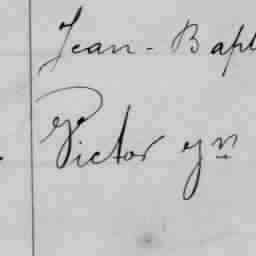 Jean-Bapt
Victor yn